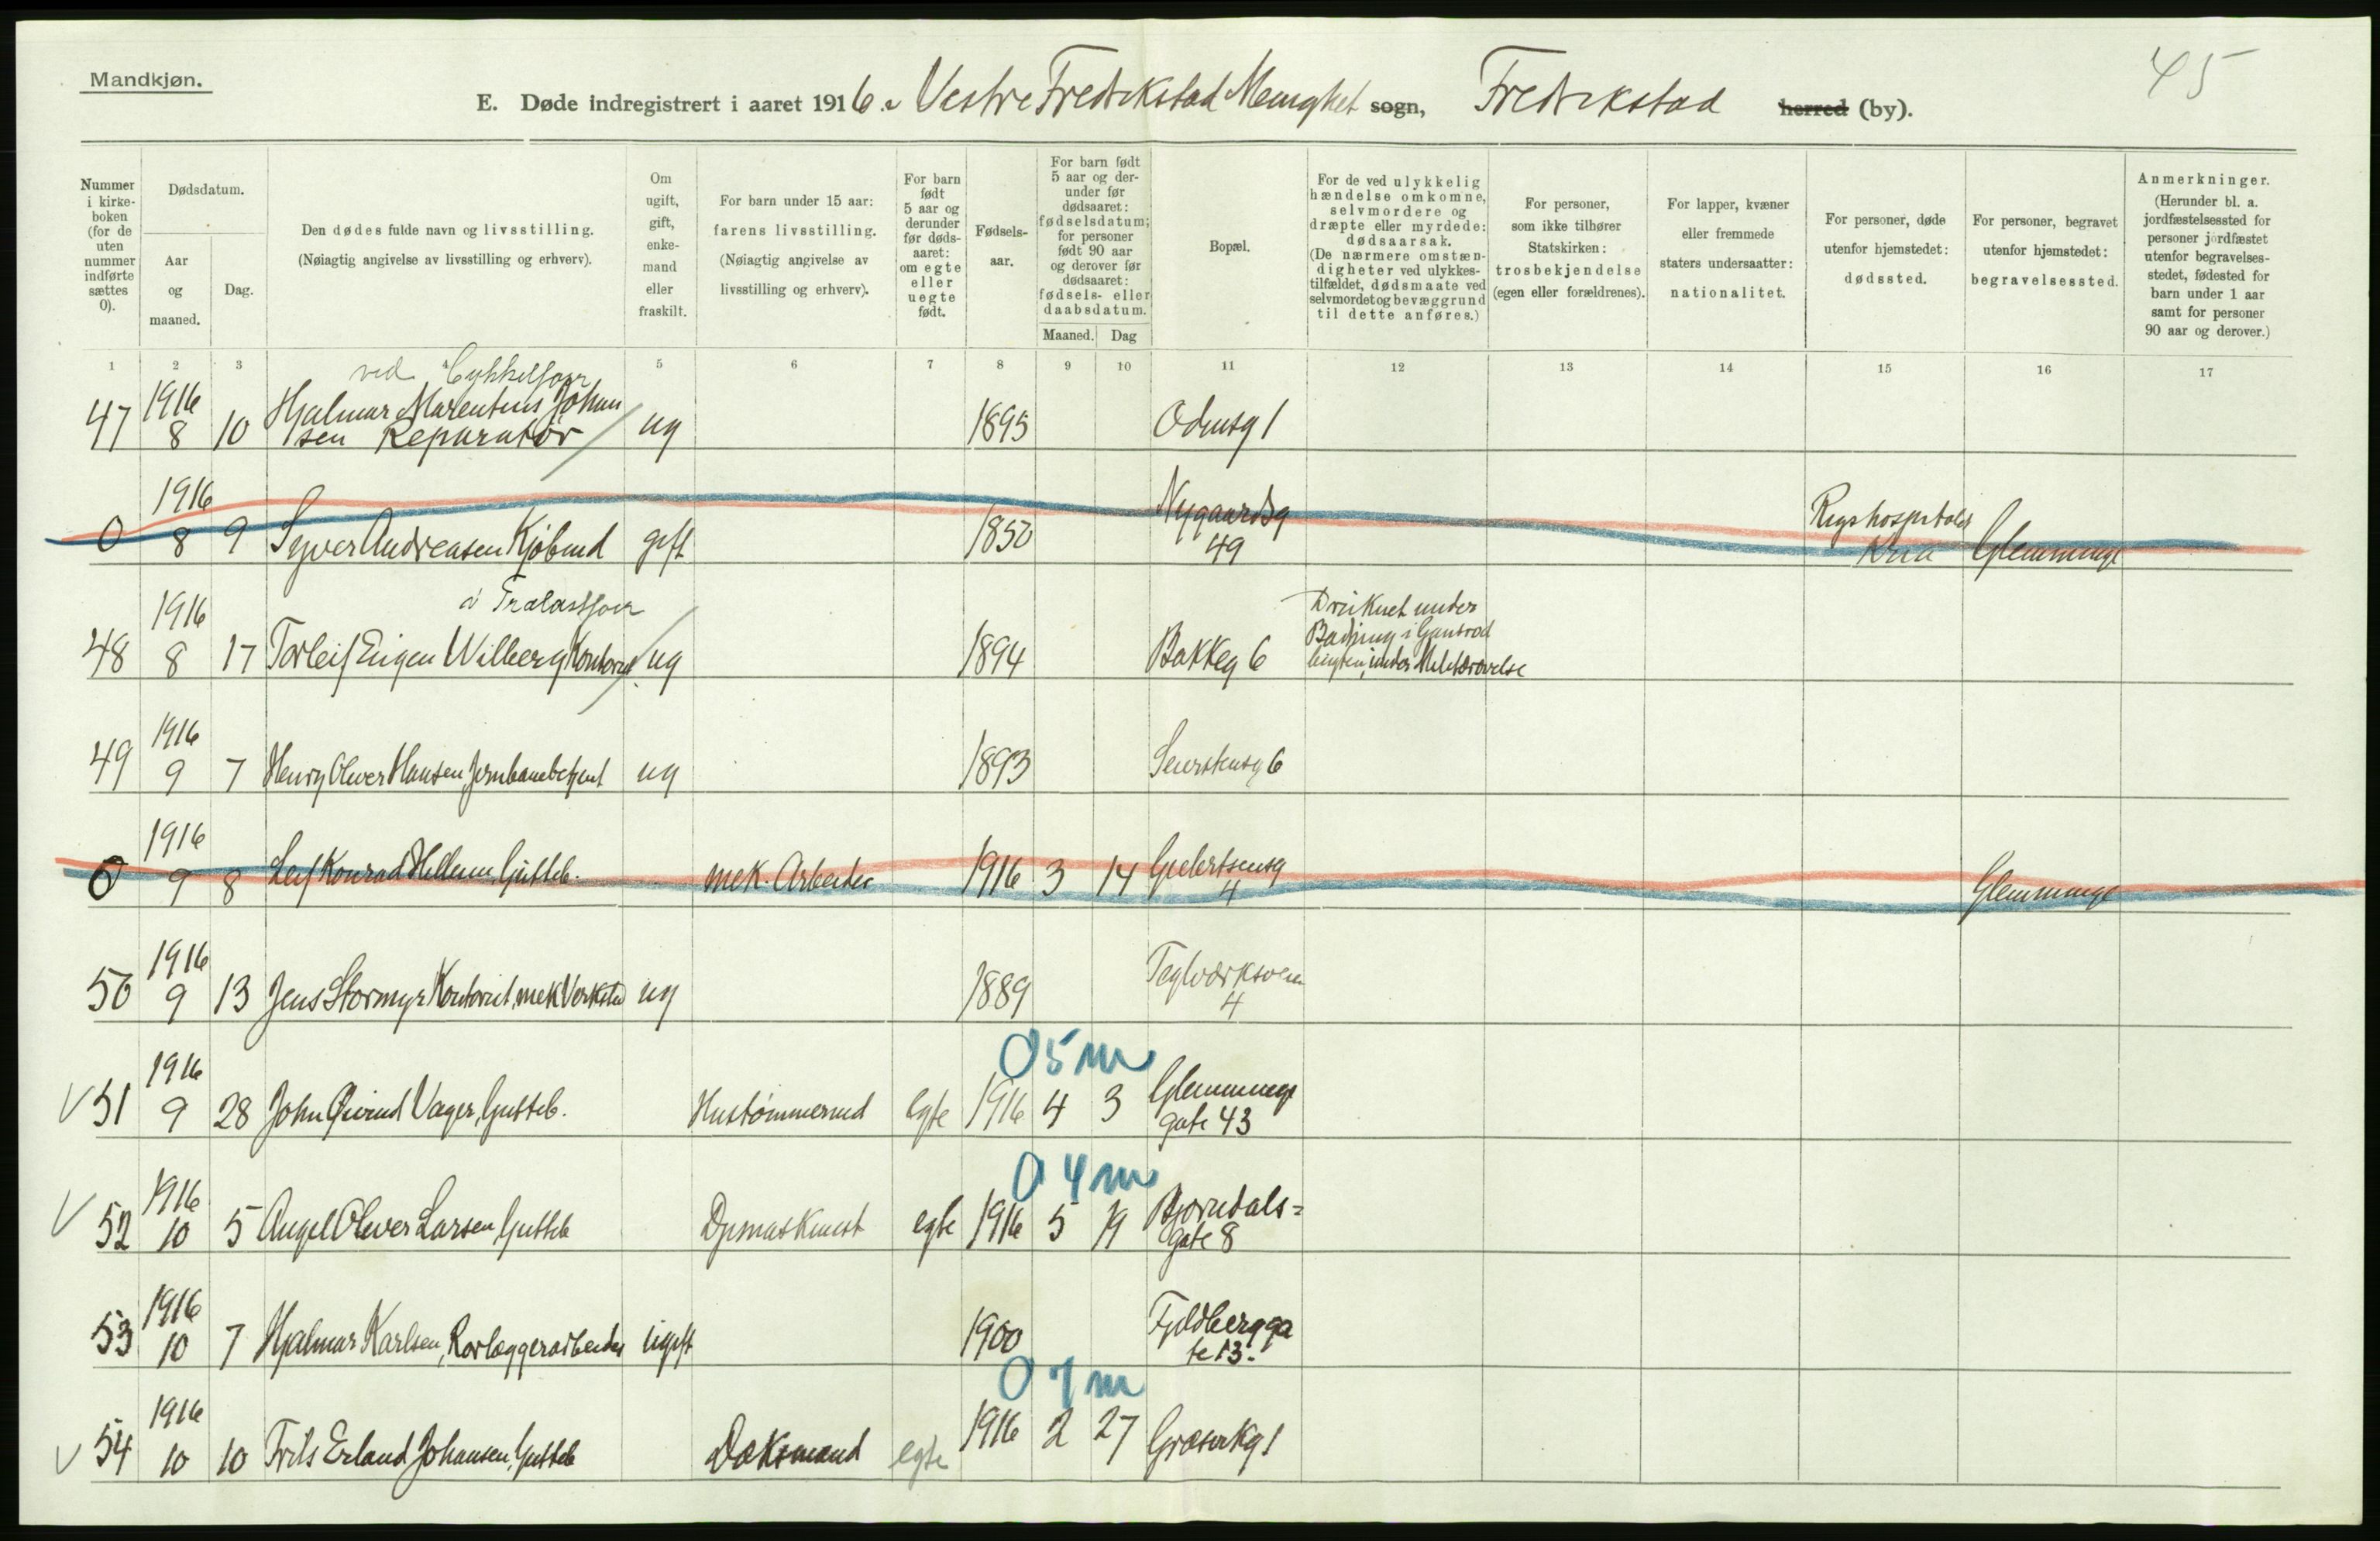 Mandkjøn.
45
E. Døde indregistrert i aaret 1916 i Vestre Fredrikstad Menighet sogn, Fredrikstad herred (by).
Nummer i kirke-boken (for de uten nummer indførte sættes 0).
Dødsdatum.
Aar og maaned.
Dag.
Den dødes fulde navn og livsstilling.
(Nøiagtig angivelse av livsstilling og erhverv).
Om ugift, gift, enke-mand eller fraskilt.
For barn under 15 aar: farens livsstilling.
(Nøiagtig angivelse av livsstilling og erhverv).
For barn født 5 aar og derunder før døds-aaret: om egte eller uegte født.
Fødsels-aar.
For barn født 5 aar og der-under før dødsaaret: fødselsdatum; for personer født 90 aar og derover før dødsaaret: fødsels- eller daabsdatum.
Maaned.
Dag
Bopæl.
For de ved ulykkelig hændelse omkomne, selvmordere og dræpte eller myrdede: dødsaarsak.
(De nærmere omstæn-digheter ved ulykkes-tilfældet, dødsmaate ved selvmordet og bevæggrund til dette anføres.)
For personer, som ikke tilhører Statskirken: trosbekjendelse (egen eller forældrenes).
For lapper, kvæner eller fremmede staters undersaatter: nationalitet.
For personer, døde utenfor hjemstedet: dødssted.
For personer, begravet utenfor hjemstedet: begravelsessted.
Anmerkninger.
(Herunder bl. a. jordfæstelsessted for personer jordfæstet utenfor begravelses-stedet, fødested for barn under 1 aar samt for personer 90 aar og derover.)
1 2 3 5 6 7 8 9 10 11 12 13 14 15 16 17
ved Cykkelforr
47 1916 8 10 Hjalmar Marentius Johan
sen Reparatør ug 1895 Odinsg 1
0 1916 8 9 Syver Andreasen Kjøbmd gift 1850 Nygaardsg 49 Rigshospitalet Kria Glemminge
i Trælastforr
48 1916 8 17 Torleif Eugen Wilberg Kontorist ug 1894 Bakkeg 6 Druknet under
Badning i
under Militærøvelse
49 1916 9 7 Henry Oliver Hansen, Jernbanebetjent ug 1893 Seierstensg 6
0 1916 9 8 Leif Konrad Hellum, Gutteb. mek. Arbeider 1916 3 14 Gjelertsensg 4 Glemminge
50 1916 9 13 Jens Stormyr Kontorist, mek Verksted ug 1889 Teglværksveien 4
0 5 m
V 51 1916 9 28 John Øivind Vager, Gutteb. Hustømmermd egte 1916 4 3 Glemminge
gate 43
0 4 m
V 52 1916 10 5 Angel Oliver Larsen, Gutteb Dpmaskinist egte 1916 5 19 Bjørndals=
gate 8
53 1916 10 7 Hjalmar Karlsen, Rørlæggerarbeider ugift 1900 Fjeldbergga
te 13.
0 7 m
V 54 1916 10 10 Frits Erland Johansen, Gutteb Dæksmand egte 1916 2 27 Græsvikg 1